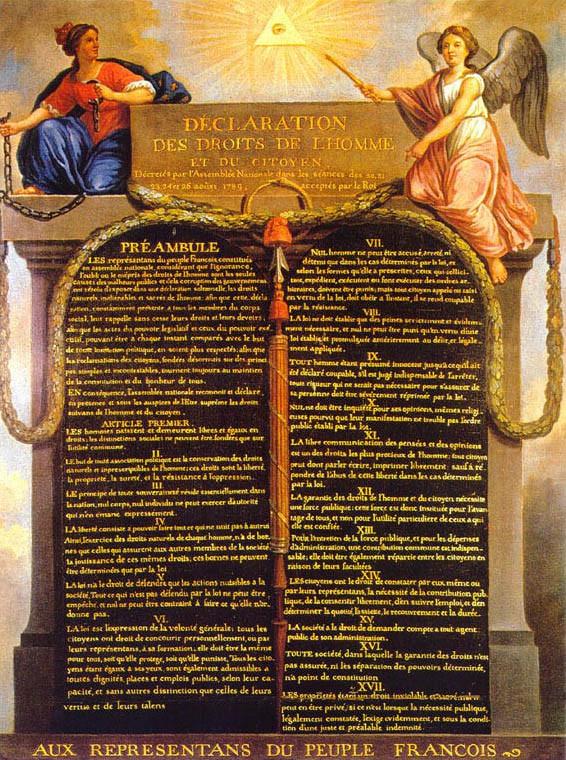 DÉCLARATION
DES DROITS DE L'HOMME
ET DU CITOYEN,
Décretés par l'Assemblée Nationale dans les séances des 20, 21
23, 24 et 26 août 1789, acceptés par le Roi
PRÉAMBULE
LES représentans du peuple François, constitués
en assemblée nationale, considérant que l'ignorance,
l'oubli ou le mépris des droits de l'homme sont les seules
causes des malheurs publics et de la corruption des gouvernemens
ont résolu d'exposer dans une déclaration solemnelle, les droits
naturels, inaliénables et sacrés de l'homme; afin que cette décla-
ration, constamment présente à tous les membres du corps
social, leur rappelle sans cesse leurs droits et leurs devoirs;
afin que les actes du pouvoir législatif et ceux du pouvoir exé-
cutif, pouvant être à chaque instant comparés avec le but
de toute institution politique, en soient plus respectés; afin que
les reclamations des citoyens, fondées désormais sur des princi-
pes simples et incontestables, tournent toujours au maintien
de la constitution et du bonheur de tous.
EN conséquence, l'assemblée nationale reconnoit et déclare,
en présence et sous les auspices de l'Etre suprême les droits
suivans de l'homme et du citoyen.
ARTICLE PREMIER.
LES hommes naissent et demeurent libres et égaux en
droits; les distinctions sociales ne peuvent être fondées que sur
l'utilité commune.
II.
LE but de toute association politique est la conservation des droits
naturels et imprescriptibles de l'homme; ces droits sont la liberté,
la propriété, la sureté, et la résistance à l'oppression.
III.
LE principe de toute souveraineté réside essentiellement dans
la nation, nul corps, nul individu ne peut exercer d'autorité
qui n'en émane expressément.
IV.
LA liberté consiste à pouvoir faire tout ce qui ne nuit pas à autrui
Ainsi, l'exercice des droits naturels de chaque homme, n'a de bor-
nes que celles qui assurent aux autres membres de la société
la jouissance de ces mêmes droits; ces bornes ne peuvent
être déterminées que par la loi
V.
LA loi n'a le droit de défendre que les actions nuisibles à la
société. Tout ce qui n'est pas défendu par la loi ne peut être
empêché, et nul ne peut être contraint à faire ce qu'elle n'or-
donne pas.
VI.
LA loi est l'expression de la volonté générale; tous les
citoyens ont droit de concourir personnellement, ou par
leurs représentans, à sa formation; elle doit être la même
pour tous, soit qu'elle protege, soit qu'elle punisse. Tous les cito-
yens étant égaux à ses yeux, sont également admissibles à
toutes dignités, places et emplois publics, selon leur ca-
pacité, et sans autres distinction que celles de leurs
vertus et de leurs talens
VII.
NUL homme ne peut être accusé, arreté, ni
détenu que dans les cas déterminés par la loi, et
selon les formes qu'elle a prescrites, ceux qui sollici-
tent, expédient, exécutent ou font exécuter des ordres ar-
bitraires, doivent être punis; mais tout citoyen appelé ou saisi
en vertu de la loi, doit obéir à l'instant, il se rend coupable
par la résistance.
VIII.
LA loi ne doit établir que des peines strictement et évidem-
ment nécessaire, et nul ne peut être puni qu'en vertu d'une
loi établie et promulguée antérierement au délit, et légale-
ment appliquée.
IX.
TOUT homme étant présumé innocent jusqu'à ce qu'il ait
été déclaré coupable, s'il est jugé indispensable de l'arrêter,
toute rigueur qui ne serait pas nécessaire pour s'assurer de
sa personne doit être sévérement réprimée par la loi.
X.
NUL ne doit être inquiété pour ses opinions, mêmes religi-
euses pourvu que leur manifestation ne trouble pas l'ordre
public établi par la loi.
XI.
LA libre communication des pensées et des opinions
est un des droits les plus precieux de l'homme; tout citoyen
peut donc parler écrire, imprimer librement: sauf à ré-
pondre de l'abus de cette liberté dans les cas déterminés
par la loi.
XII.
LA garantie des droits de l'homme et du citoyen nécessite
une force publique; cette force est donc instituée pour l'avan-
tage de tous, et non pour l'utilité particuliere de ceux a qui
elle est confiée.
XIII.
Pour l'entretien de la force publique, et pour les dépenses
d'administration, une contribution commune est indispen-
sable; elle doit être également répartie entre les citoyens en
raison de leurs facultées
XIV.
LES citoyens ont le droit de constater par eux même ou
par leurs représentans, la nécessité de la contribution pub-
lique, de la consentir librement, d'en suivre l'emploi, et d'en
déterminer la quotité, l'assiette, le recouvrement et la durée.
XV.
LA société a le droit de demander compte a tout agent
public de son administration.
XVI.
TOUTE société, dans laquelle la garantie des droits n'est
pas assurée, ni les séparation des pouvoirs déterminée,
n'a point de constitution
XVII.
LES propriétés étant un droit inviolable et sacré, nul ne
peut en être privé, si ce n'est lorsque la nécessité publique,
légalement constatée, l'exige evidemment, et sous la condi-
tion d'une juste et préalable indemnité.
AUX REPRESENTANS DU PEUPLE FRANCOIS